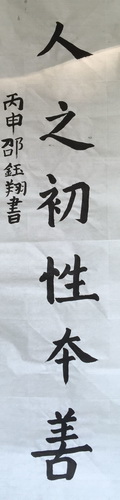 人之初性本善
丙申邵鈺翔書